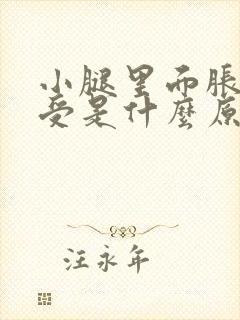 小腿里而脹
受是什麼原
汪永年